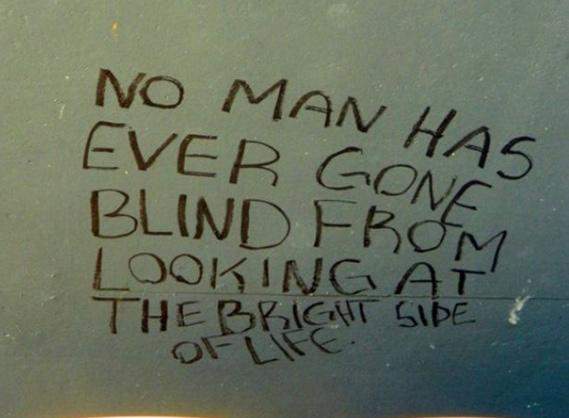 NO MAN HAS
EVER GONE
BLIND FROM
LOOKING AT
THE BRIGHT SIDE
OF LIFE.